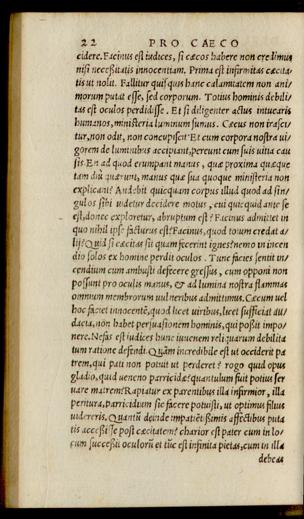 22 PRO CAECO
cidere. Facinus est iudices, si cæcos habere non credimus
nisi neceßitatis innocentiam. Prima est infirmitas cæcita-
tis ut nolit. Fallitur quisquis hanc calamitatem non ani-
morum putat esse, sed corporum. Totius hominis debili-
tas est oculos perdidisse. Et si diligenter actus intuearis
humanos, ministeria luminum sumus. Cæcus non irasci-
tur, non odit, non concupiscit. Et cum corpora nostra ui-
gorem de luminibus accipiant, pereunt cum suis uitia cau
sis. En ad quod erumpant manus, quæ proxima quæque
tam diu quærunt, manus quæ sua quoque ministeria non
explicant? Audebit quicquam corpus illud quod ad sin-
gulos sibi uidetur decidere motus, cui quicquid ante se
est, donec exploretur, abruptum est? Facinus admittet in
quo nihil ipse facturus est? Facinus, quod totum credat a-
lijs? Quid si cæcitas sit quam fecerint ignes? nemo in incen
dio solos ex homine perdit oculos. Tunc facies sentit in-
cendium cum ambusti defecere gressus, cum opponi non
possunt pro oculis manus, & ad lumina nostra flammas
omnium membrorum uulneribus admittimus. Cæcum uel
hoc faciet innocentē, quod licet uiribus, licet sufficiat au-
dacia, non habet persuasionem hominis, qui poßit impo-
nere. Nefas est iudices hunc iuuenem reliquarum debilita
tum ratione defendi. Quàm incredibile est ut occiderit pa
trem, qui pati non potuit ut perderet? rogo quid opus
gladio, quid ueneno parricidæ? quantulum fuit potius ser
uare matrem? Raptatur ex parentibus illa infirmior, illa
peritura, parricidium sic facere potuisti, ut optimus filius
uidereris. Quantū deinde impatiētißimis affectibus puta
tis acceßisse post cæcitatem? charior est pater cum in lo-
cum succeßit oculorū et tūc est infinita pietas, cum in illa
debeas